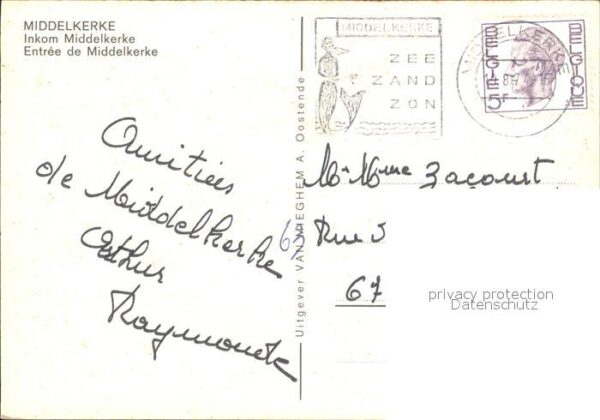 MIDDELKERKE
Inkom Middelkerke
Entrée de Middelkerke
MIDDELKERKE
ZEE
ZAND
ZON
MIDDELKERKE
BELGIE 5F BELGIQUE
Amitiés
de Middelkerke
Arthur
Raymonde
63
Uitgever VAN MIEGHEM A. Oostende
Mr Mme Bacourt
Rue
67
privacy protection
Datenschutz